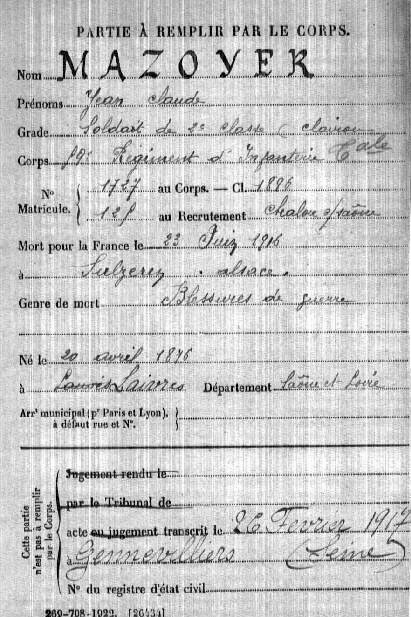 PARTIE À REMPLIR PAR LE CORPS.
Nom MAZOYER
Prénoms Jean Claude
Grade Soldat de 2e classe (Clairon
Corps Régiment d'Infanterie Tale
Nº Matricule. 1727 au Corps. — Cl. 1896
au Recrutement Chalon s/saône
Mort pour la France le 23 Juin 1916
à alsace.
Genre de mort Blessures de guerre
Né le 20 avril 1876
à Département Saône et Loire
Arrt municipal (pr Paris et Lyon),
à défaut rue et Nº.
Cette partie n'est pas à remplir par le Corps.
Jugement rendu le
par le Tribunal de
acte ou jugement transcrit le 26 Fevrier 1917
à Gennevilliers (Seine)
Nº du registre d'état civil
269-708-1922. [26434]